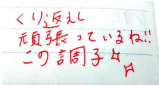 くり返えし
頑張っているね!!
この調子☆
☆